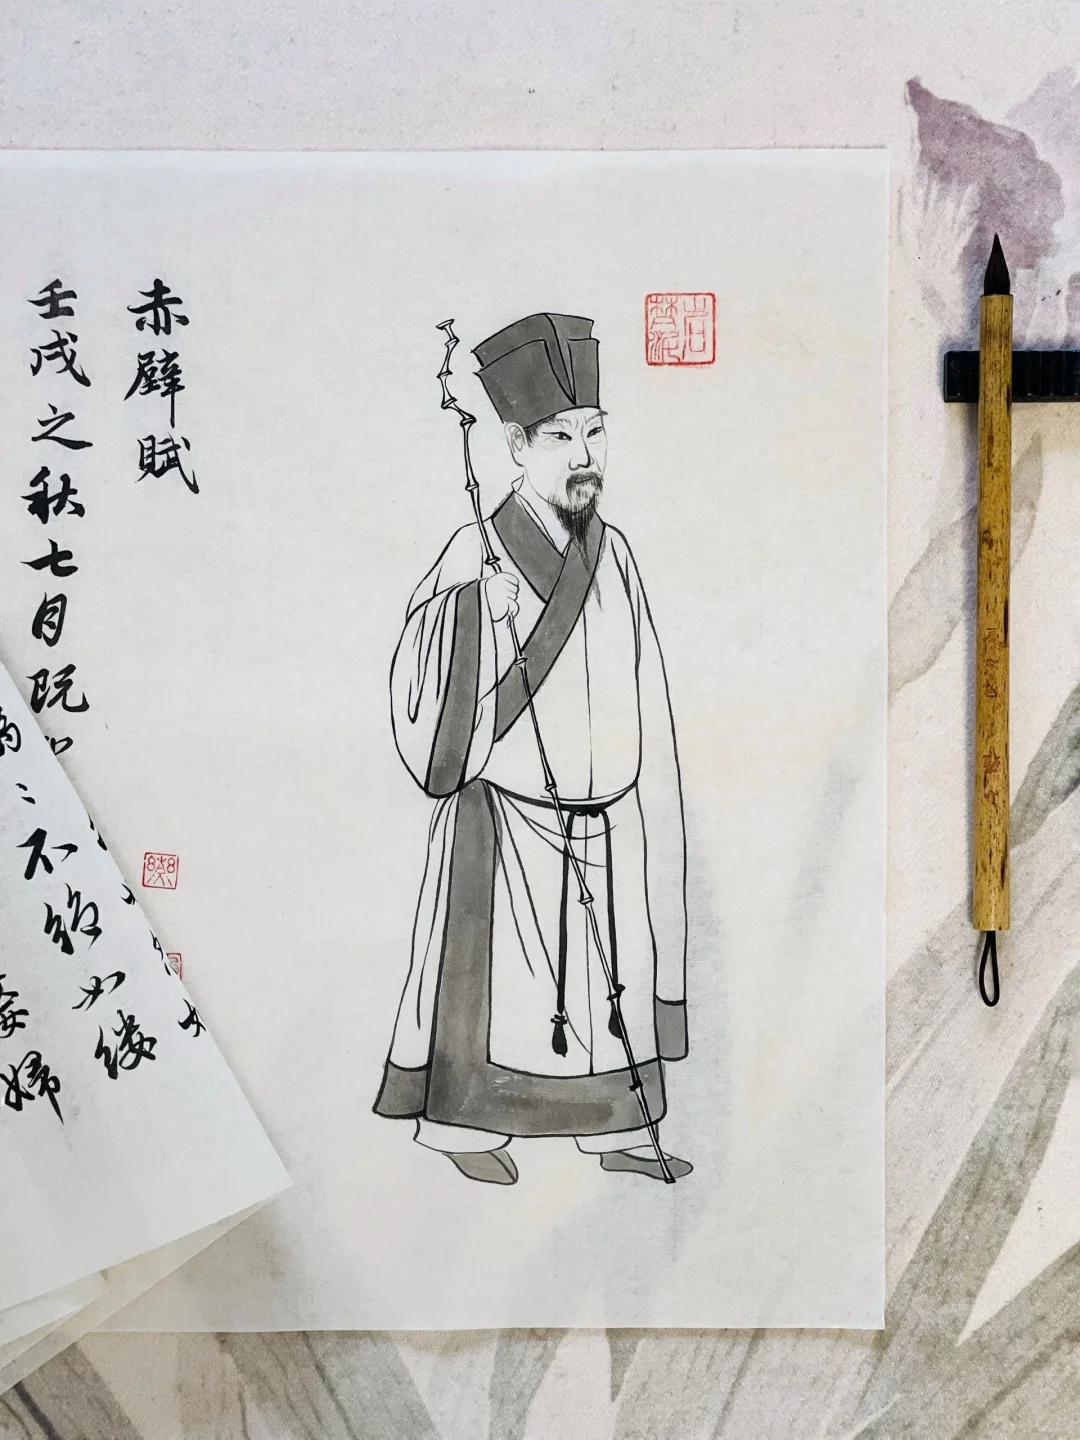 赤壁賦
壬戌之秋七月既
不絕如縷
嫠婦